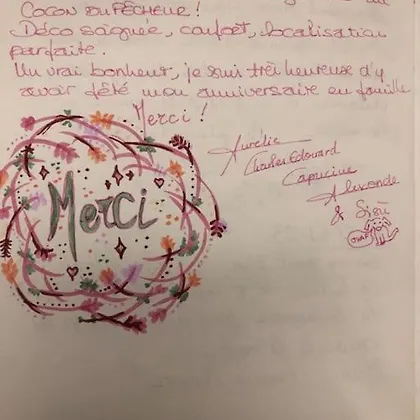 COCON DU PÊCHEUR !
Déco soignée, confort, localisation
parfaite.
Un vrai bonheur, je suis très heureuse d'y
avoir fêté mon anniversaire en famille
Merci !
Aurélie
Charles Edouard
Capucine
& Sisù
Merci